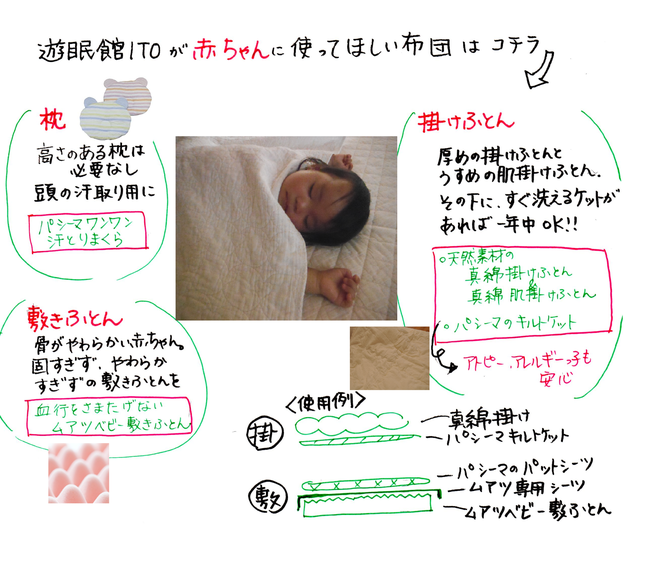 遊眠館ITOが赤ちゃんに使ってほしい布団はコチラ
枕
高さのある枕は
必要なし
頭の汗取り用に
パシーマワンワン
汗とりまくら
敷きふとん
骨がやわらかい赤ちゃん。
固すぎず、やわらか
すぎずの敷きふとんを
血行をさまたげない
ムアツベビー敷きふとん
掛けふとん
厚めの掛けふとんと
うすめの肌掛けふとん。
その下に、すぐ洗えるケットが
あれば一年中OK!!
○天然素材の
真綿掛けふとん
&
真綿肌掛けふとん
○パシーマのキルトケット
アトピー、アレルギーっ子も
安心
<使用例>
掛
真綿掛け
パシーマキルトケット
敷
パシーマのパットシーツ
ムアツ専用シーツ
ムアツベビー敷ふとん